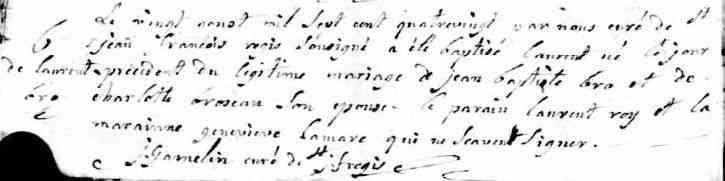 Le vingt aoust mil sept cent quatrevingt par nous curé de st
B jean francois regis sousigné a été baptisé laurent né le jour
de laurent précédent du legitime mariage de jean baptiste bro et de
bro charlotte broseau son epouse. le parain laurent roy et la
maraine genevieve Lamare qui ne scavent signer.
Gamelin curé de st j: fr regis